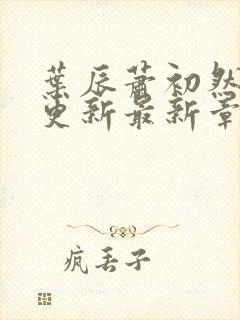 葉辰蕭初然
更新最新章
疯丢子